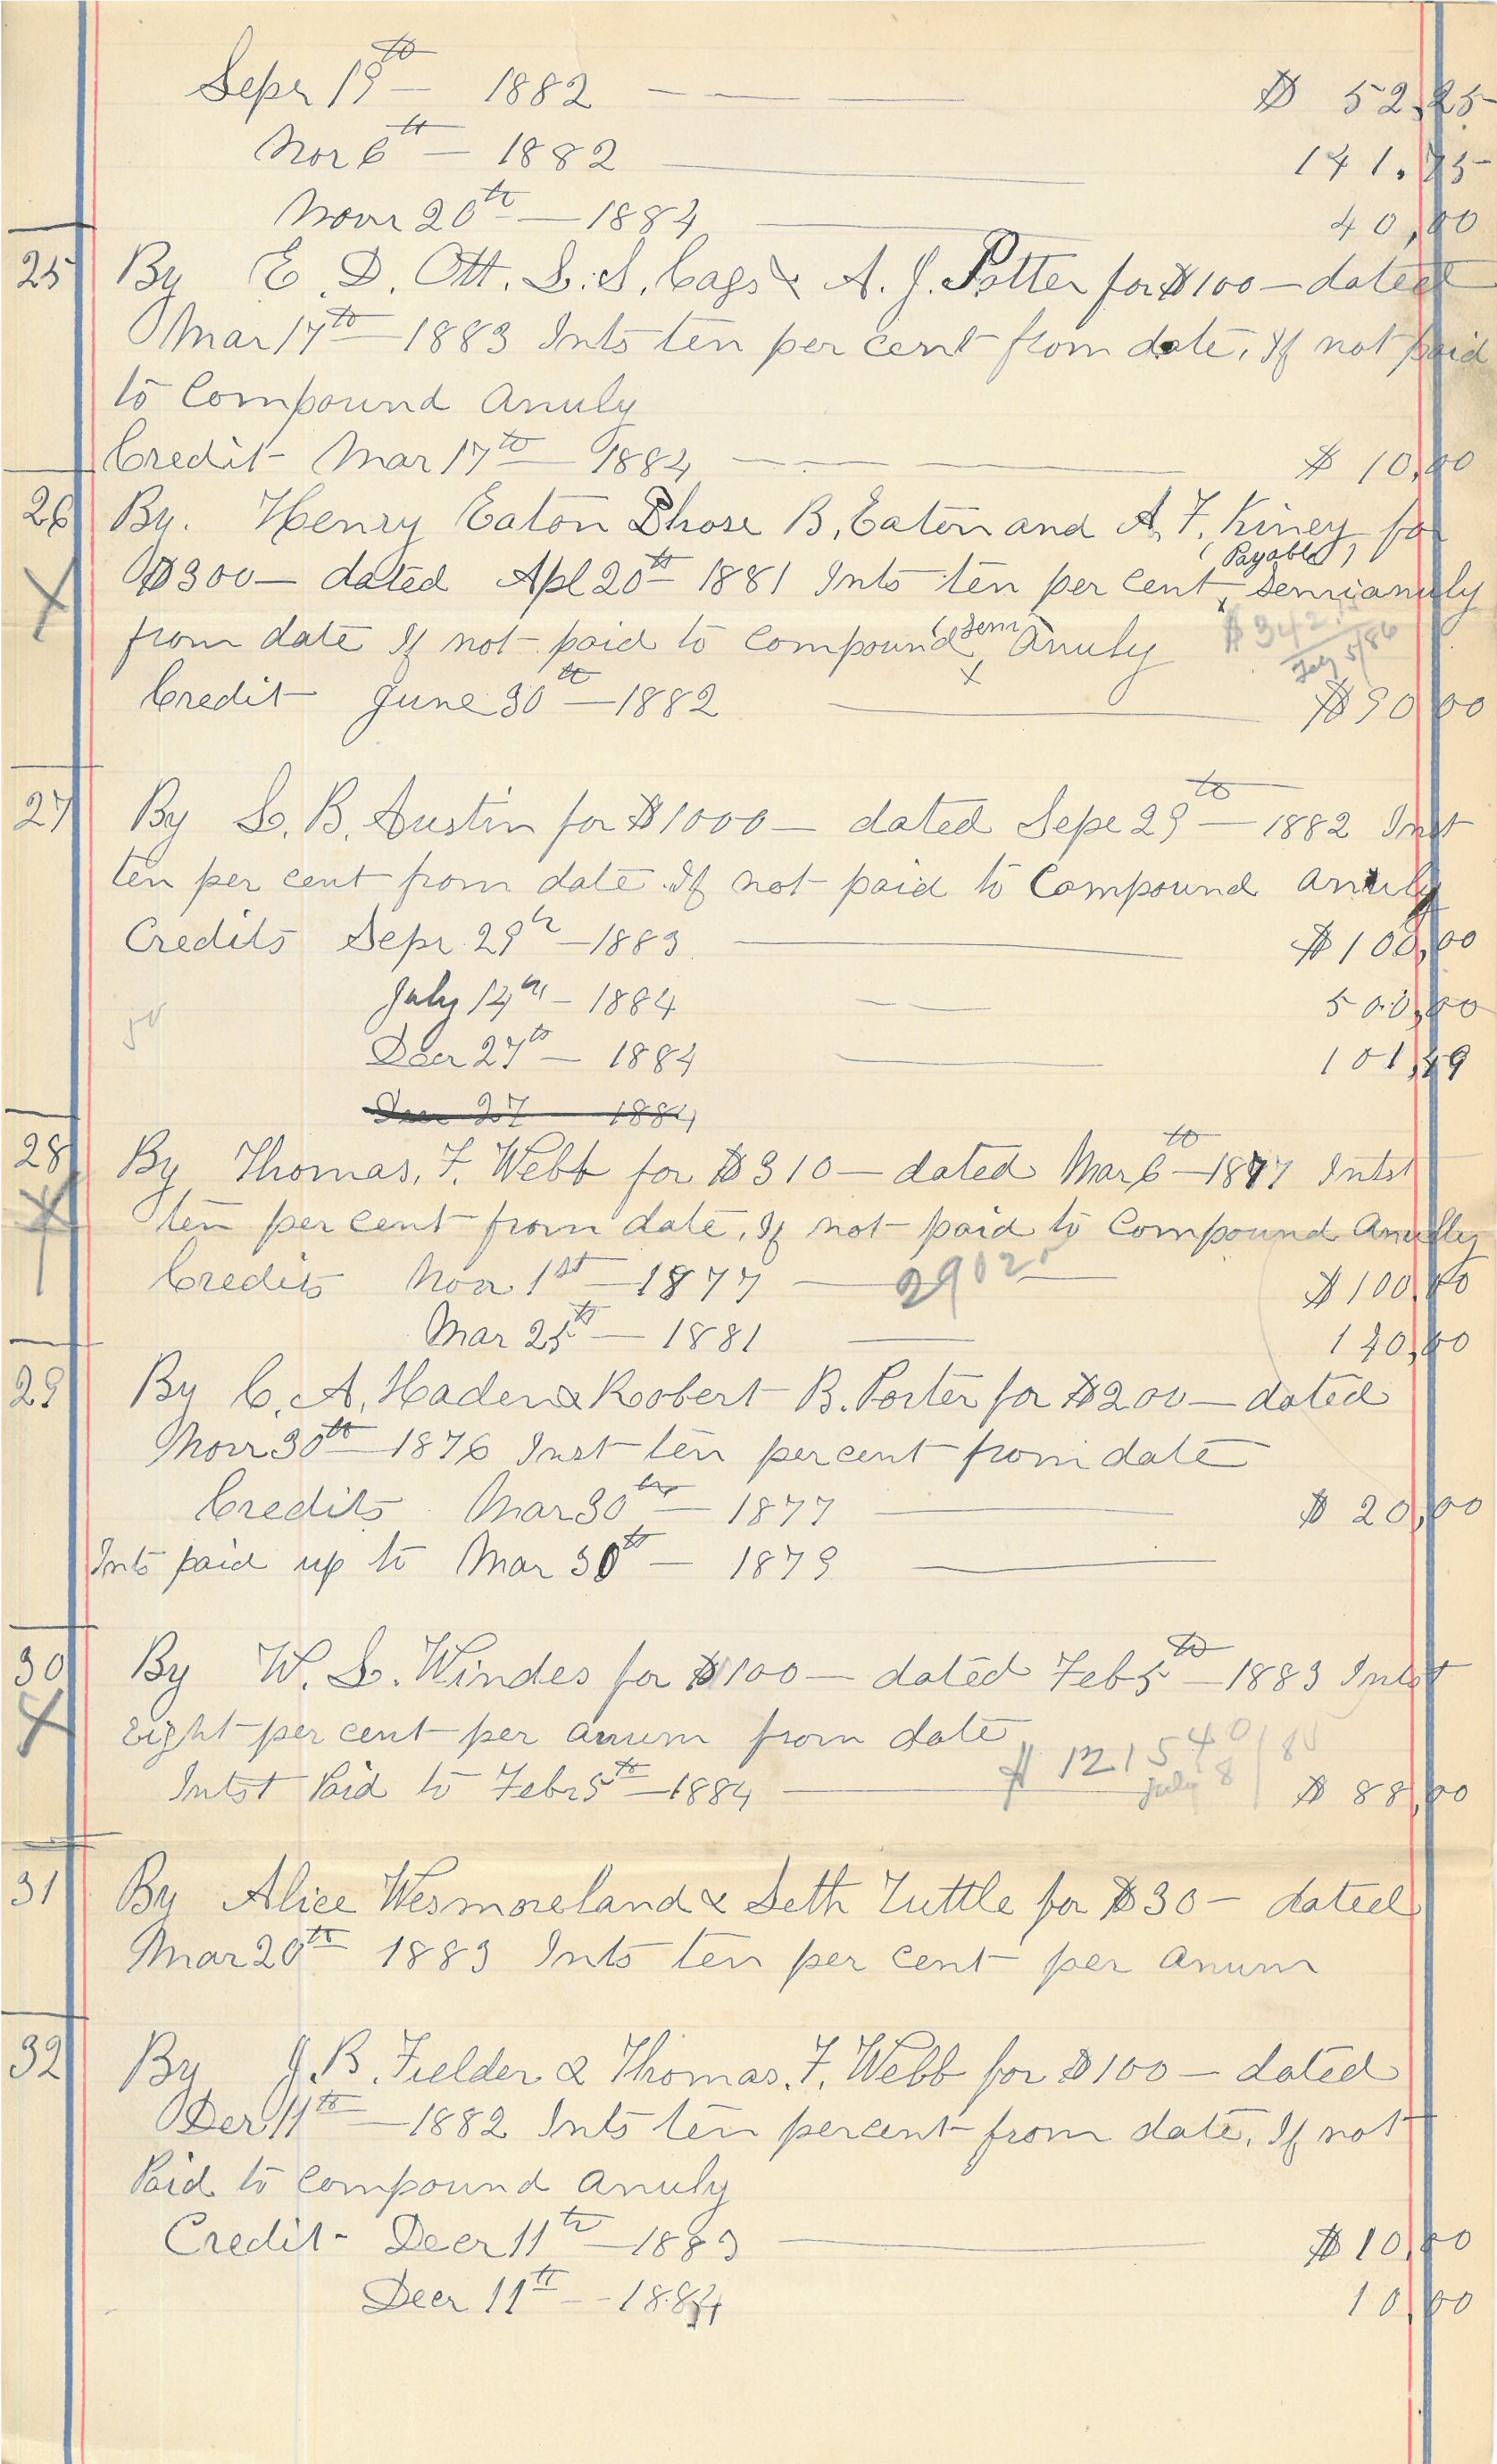 Sepr 19th — 1882 — — — $ 52.25
Novr 6th — 1882 — 141.75
Novr 20th — 1884 — 40.00
25 By E. D. Ott. L. S. Cags & A. J. Potter for $100 — dated
Mar 17th — 1883 Ints ten per cent from date, If not paid
to Compound Anuly
Credit Mar 17th — 1884 — — — $ 10.00
26 By. Henry Eaton B. Eaton and A. F. Kiney for
( Payable )
$300 — dated Apl 20th 1881 Ints ten per cent x Semianuly
from date If not paid to Compound (Sem) x Anuly $342.
July 5/86
Credit June 30th — 1882 — $90.00
27 By S. B. Austin for $1000 — dated Sepe 29th — 1882 Inst
ten per cent from date. If not paid to Compound anuly
Credits Sepr. 29th — 1883 — $100.00
July 14th — 1884 — — 500.00
50
Decr 27th — 1884 — 101.49
Dec 27 1884
28 By Thomas, F. Webb for $310 — dated Mar 6th — 1877 Intst
ten per cent from date, If not paid to Compound Anully
Credits Nov 1st — 1877 — $100.00
Mar 25th — 1881 — 120.00
29 By C. A. Haden & Roobert B. Porter for $200 — dated
Novr 30th — 1876 Inst ten per cent from date
Credits Mar 30th — 1877 — $ 20.00
Ints paid up to Mar 30th — 1879 —
30 By W. S. Windes for $100 — dated Feb 5th — 1883 Intst
Eight per cent per anum from date
$ 121540
July 8/86
Intst Paid to Febr 5th — 1884 — $ 88.00
31 By Alice Wesmoreland & Seth Tuttle for $30 — dated
Mar 20th 1883 Ints ten per cent per anum
32 By J. B. Fielder & Thomas. F. Webb for $100 — dated
Der 11th — 1882 Ints ten per cent from date, If not
Paid to Compound anuly
Credit - Decr 11th — 1883 — $10.00
Decr 11th — - 1884 10.00